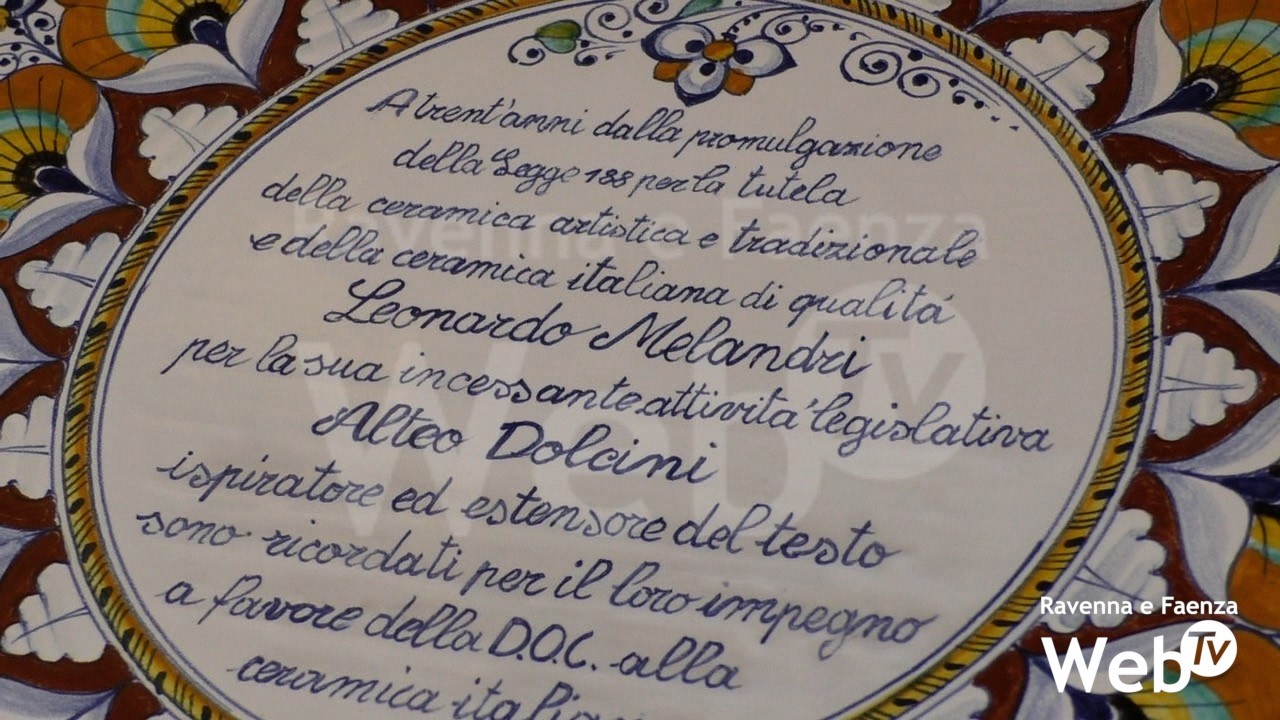 A trent'anni dalla promulgazione
della Legge 188 per la tutela
della ceramica artistica e tradizionale
e della ceramica italiana di qualitá
Leonardo Melandri
per la sua incessante attivita' legislativa
Alteo Dolcini
ispiratore ed estensore del testo
sono ricordati per il loro impegno
a favore della D.O.C. alla
ceramica
Ravenna e Faenza
Web Tv
Ravenna e Faenza
Web Tv